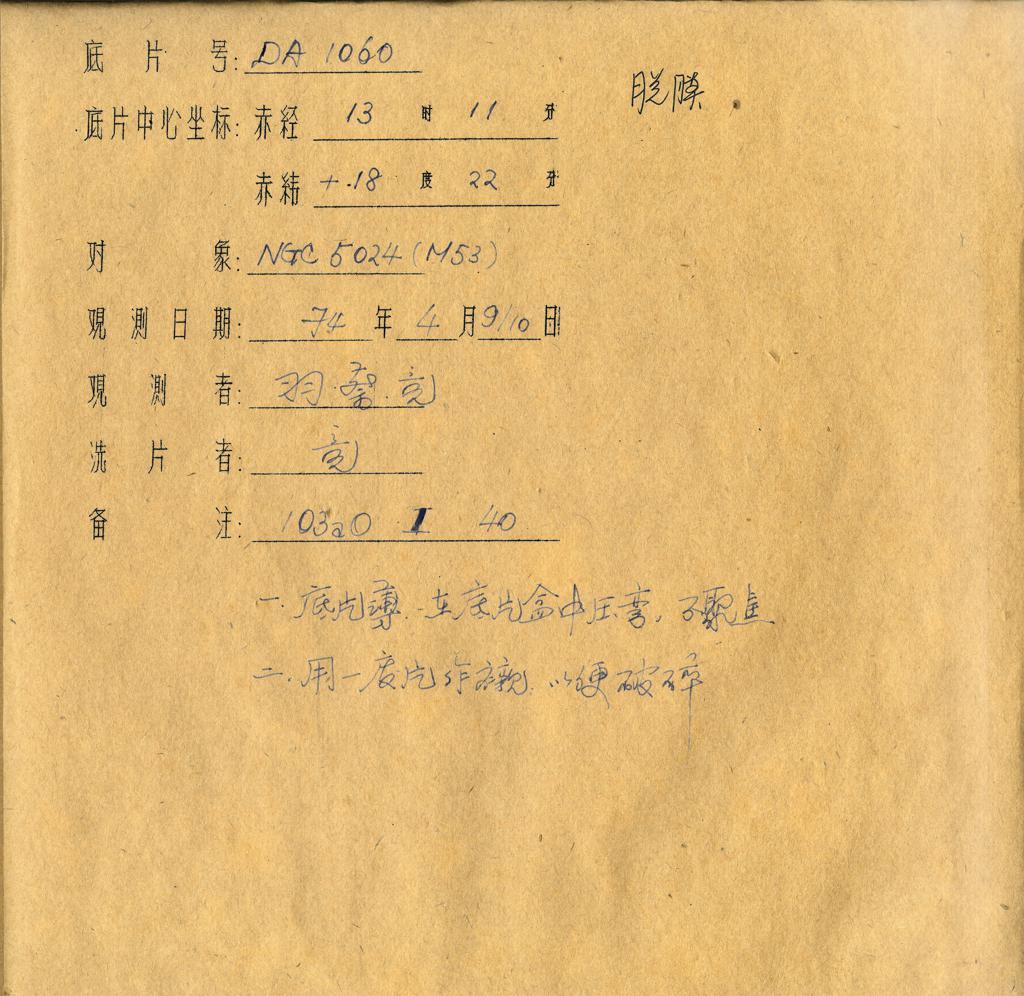 底片号: DA 1060
脱膜.
底片中心坐标: 赤经 13 时 11 分
赤纬 +18 度 22 分
对象: NGC 5024 (M53)
观测日期: 74 年 4 月 9/10 日
观测者: 羽.蔡.亮
洗片者: 亮
备注: 103aO I 40
一. 底片薄. 在底片盒中压弯, 不聚焦
二. 用一废片作衬, 以便破碎